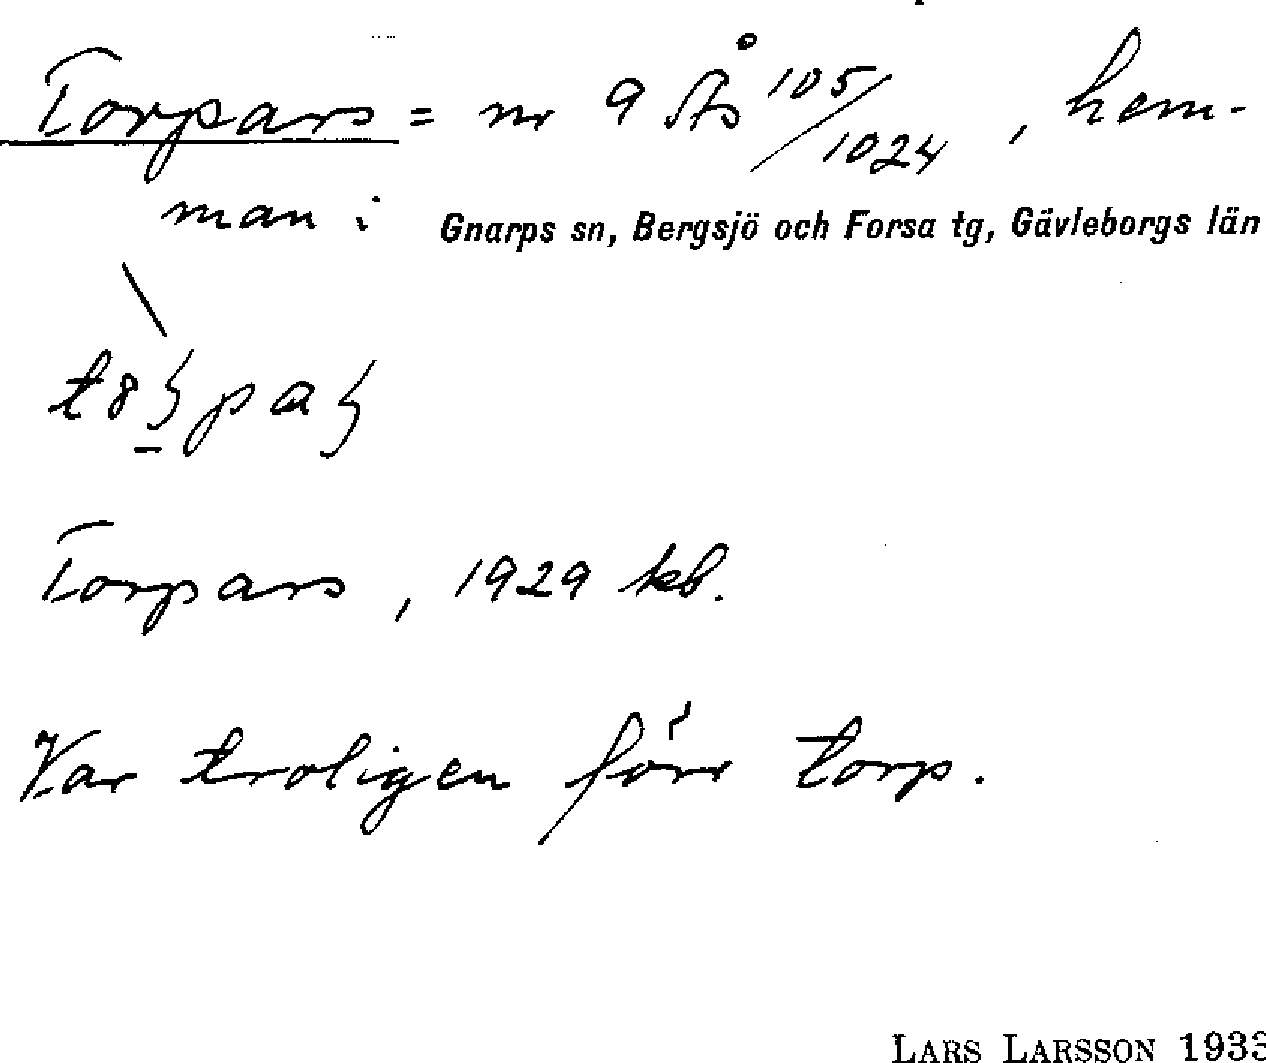 Torpars = nr 9 Ås 105/1024, hem-
man i Gnarps sn, Bergsjö och Forsa tg, Gävleborgs län
Torpars, 1929 kb.
Var troligen förr torp.
LARS LARSSON 193